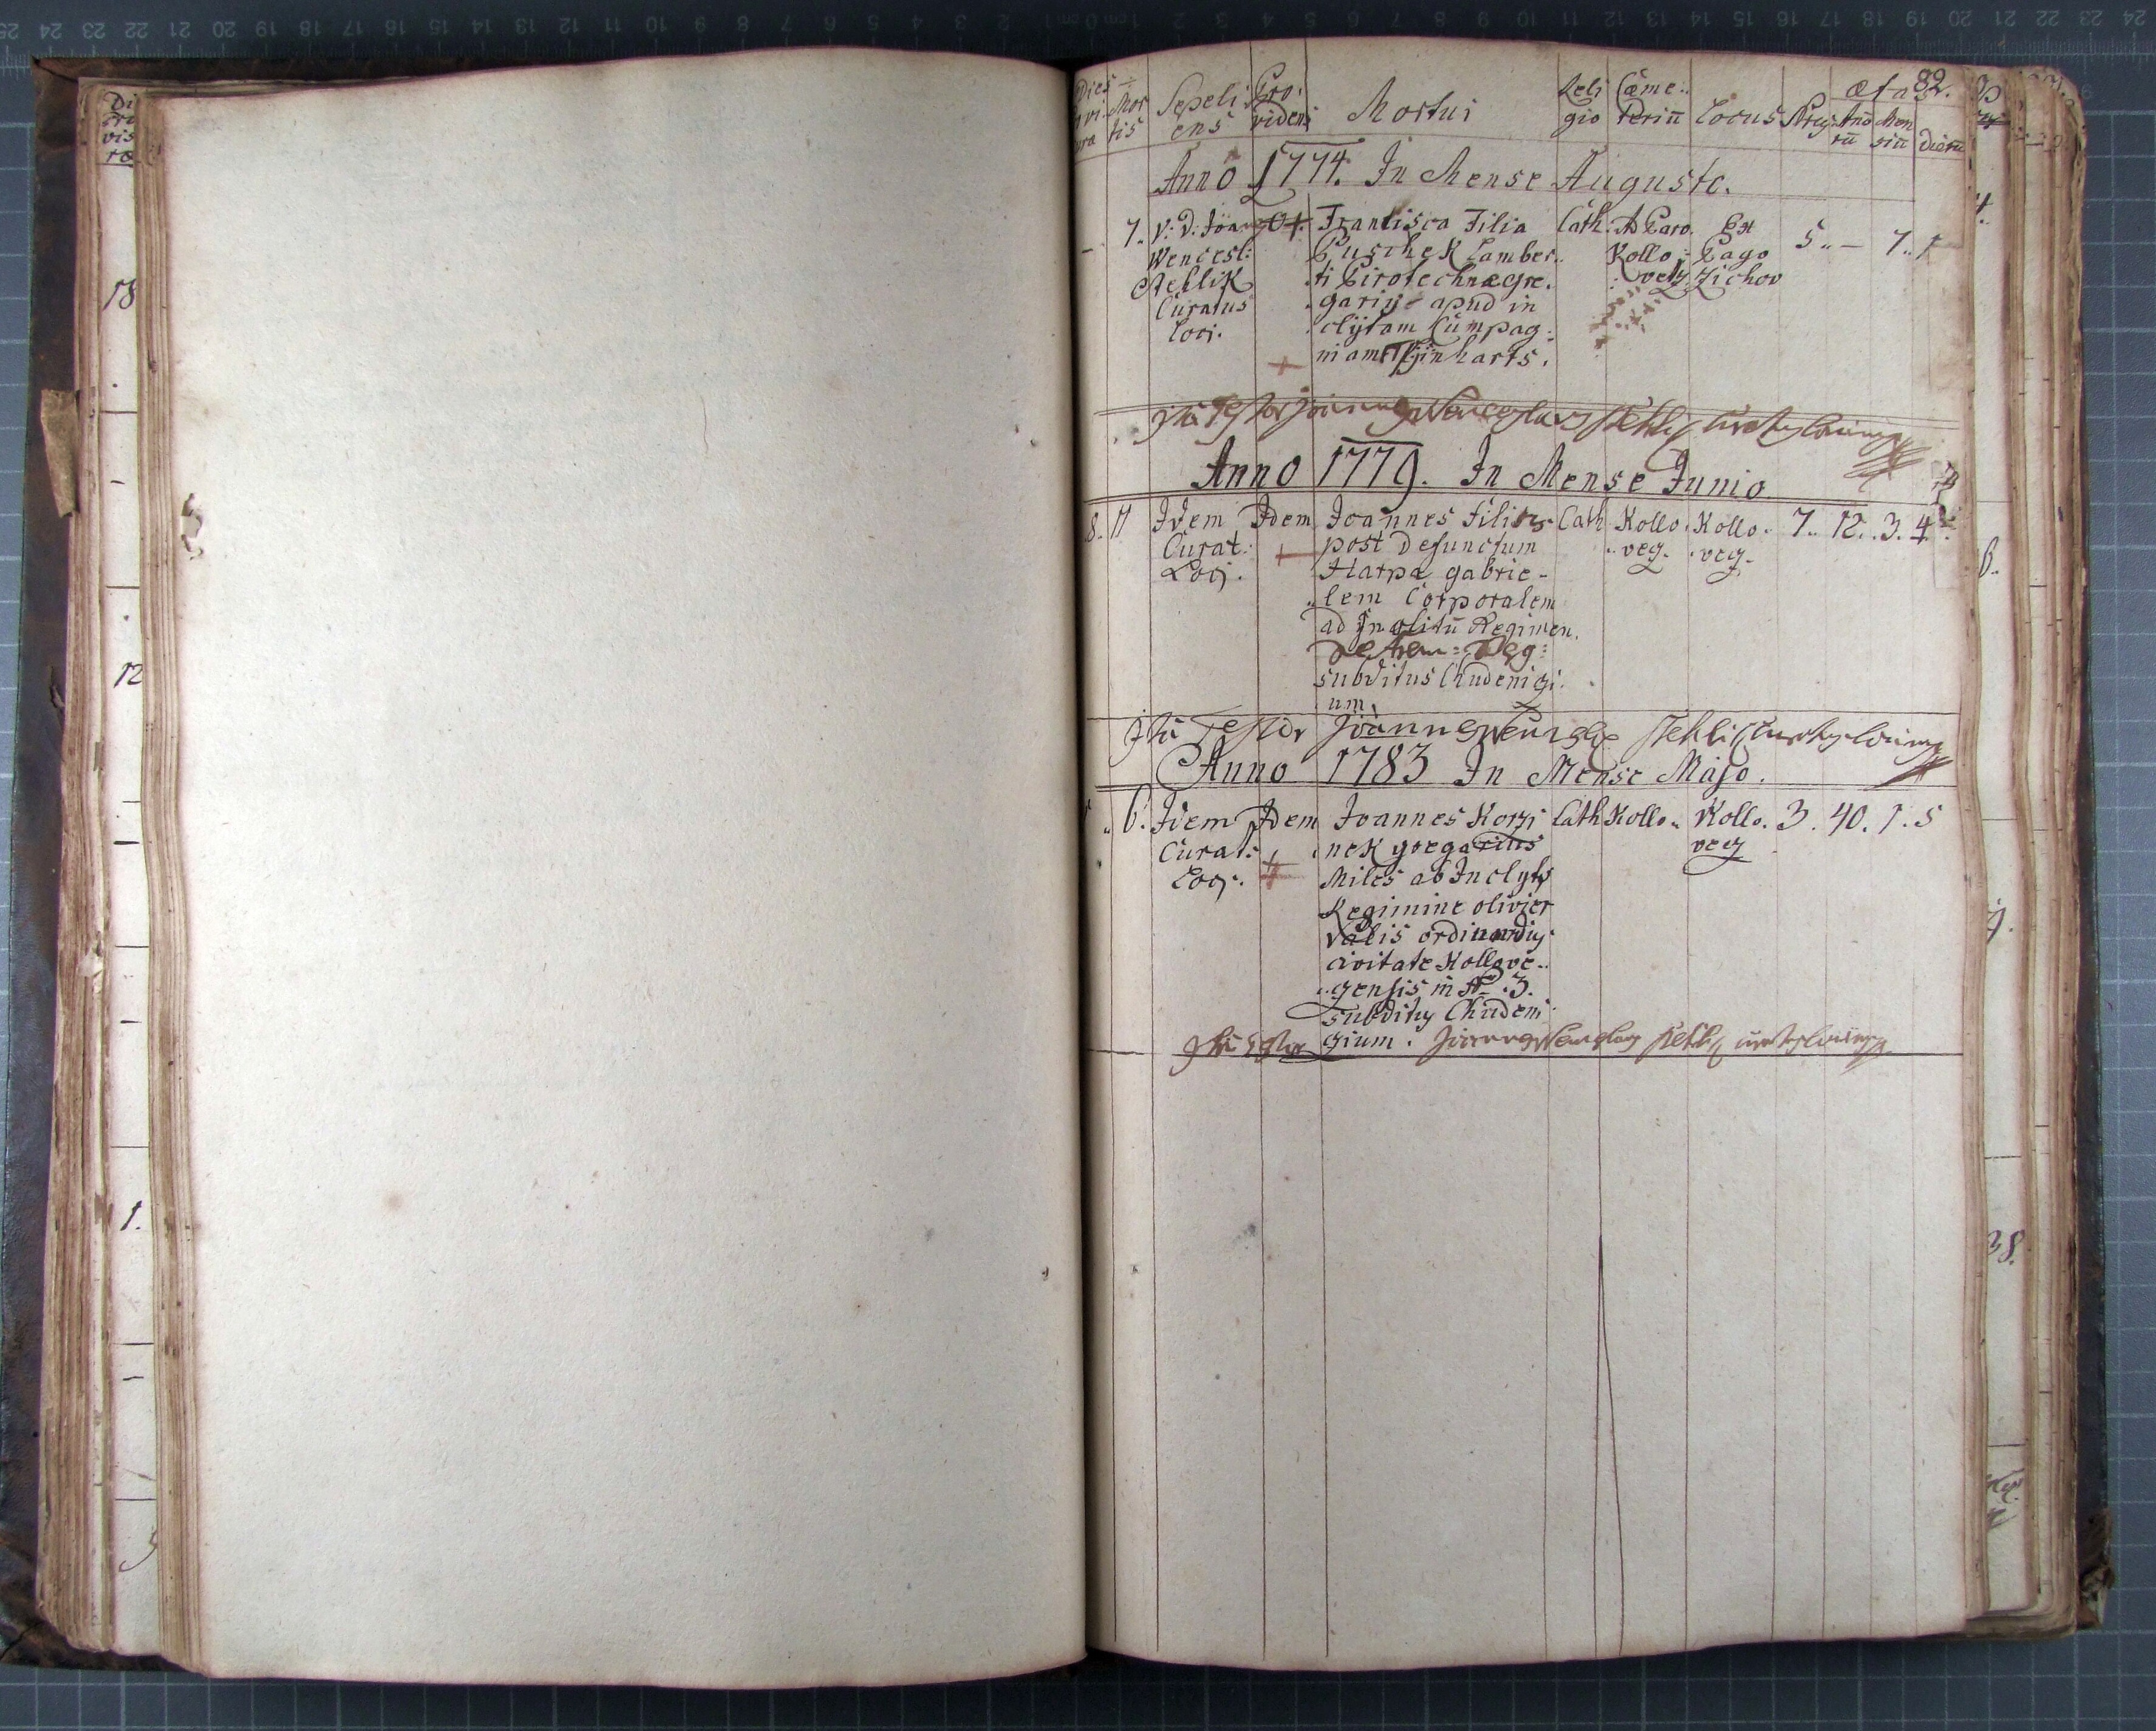 82.
Dies
Mor
tis
Sepeli
ens
Pro
videns
Mortui
Reli
gio
Cæme..
teriū
Locus
Ætas
Anno
rū
Men
siū
Dierū
Anno 1774. In Mense Augusto.
7. V: D: Joan
Wencesl:
Stehlik
Curatus
Loci.
Francisca Filia
Puschek Lamber..
ti Pirotechnægre.
garij apud in
clytam Cumpag:
niam
Cath.
A Paro.
Kollo
vetz
Ex
Pago
Zichov
5.. — 7.. 1
Ita Testor Joannes Wenceslaus Stehlik
Anno 1779. In Mense Junio
8. 11
Idem
Curat:
Locj.
Idem
Joannes Filius
post Defunctum
Harpa gabrie-
lem Corporalem
ad Inclitū Regimen.
subditus Chudenigi.
um.
Cath
Kollo.
veg.
Kollo.
veg.
7.. 12. .3. 4
Ita Testor Joannes Stehlik
Anno 1783 In Mense Majo.
6. Idem
Curat:
Locj.
Idem
Joannes Korzi
nek gregarius
Miles ab Inclyto
Regimine olivier
Valis
civitate Kollove..
gensis in No .3.
Subditus Chudeni
gium.
Cath
Kollo..
Kollo.
veg
3. 40. 1. 5
Ita Testor Joannes Wenceslaus Stehlik
18
12
1.
6.
38.